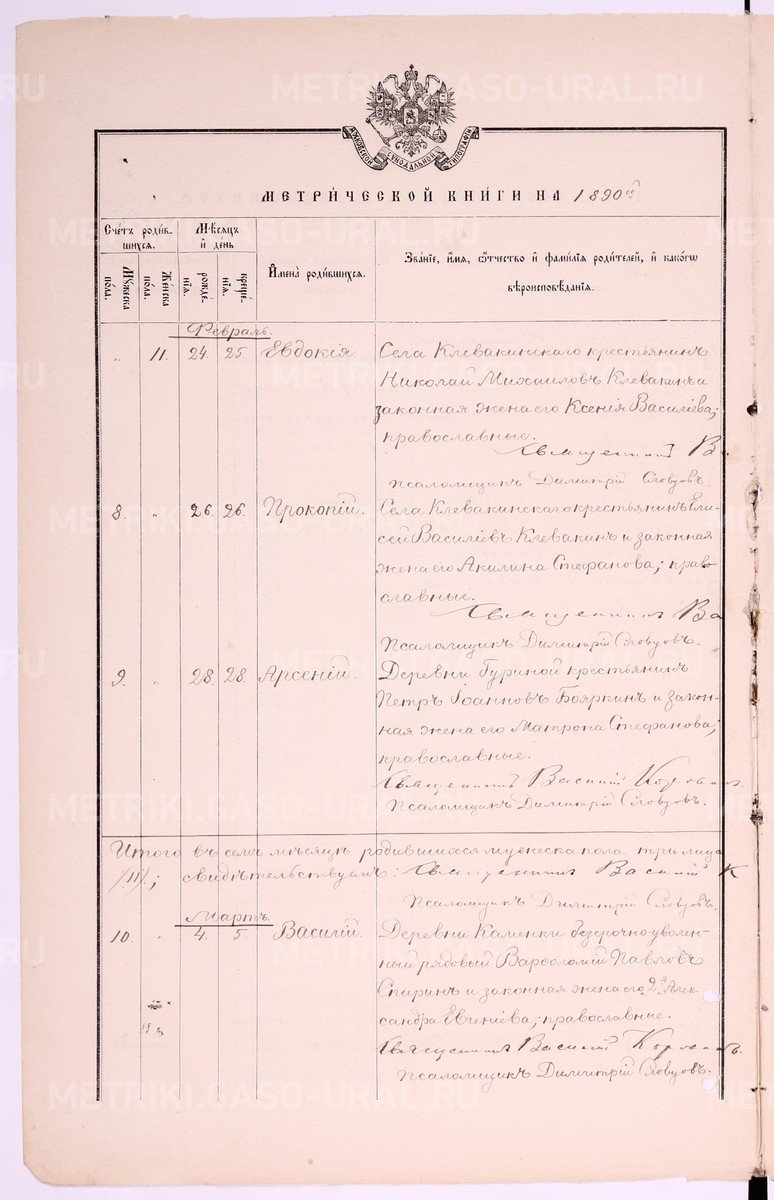 ХАРЬКОВСКОЙ СѴНОДАЛЬНОЙ ТИПОГРАФІИ
МЕТРИ́ЧЕСКОЙ КНИ́ГИ НА 1890й
Сче́тъ роди́в-
шихся.
Му́жеска
по́ла.
Же́нска
по́ла.
Мѣ́сяцъ
и҆ де́нь
рожде́-
нїя.
креще́-
нїя.
И҆мена̀ роди́вшихся.
Зва́нїе, и҆́мя, ѻ҆́тчество и҆ фами́лїя роди́телей, и҆ како́гѡ
вѣроисповѣ́данїя.
Февраль.
„ 11. 24. 25. Евдокія
Села Клевакинскаго крестьянинъ
Николай Михаиловъ Клевакинъ и
законная жена его Ксенія Василіева;
православные.
Священникъ Ва
Псаломщикъ Димитрій Словцовъ
8. „ 26. 26. Прокопій.
Села Клевакинскаго крестьянинъ Ели-
сей Василіевъ Клевакинъ и законная
жена его Акилина Стефанова; право
славные.
Священникъ Ва
Псаломщикъ Димитрій Словцовъ.
9. „ 28. 28. Арсеній.
Деревни Гуриной крестьянинъ
Петръ Іоанновъ Бояркинъ и закон-
ная жена его Матрона Стефанова;
православные.
Священникъ Василій
Псаломщикъ Димитрій Словцовъ.
Итого въ семъ мѣсяцѣ родившихся мужеска пола три лица
/III/.; свидѣтельствуемъ: Священникъ Василій К
Псаломщикъ Димитрій Словцовъ.
Мартъ.
10. „ 4. 5. Василій.
Деревни Каменки безсрочноуволен-
ный рядовый Варѳоломій Павловъ
Спиринъ и законная жена его 2я Алек-
сандра Евгеніева; православные.
Священникъ Василій
Псаломщикъ Димитрій Словцовъ.
METRIKI.GASO-URAL.RU